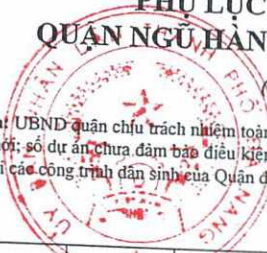 PHỤ LỤC
QUẬN NGŨ HÀN
(
UBND quận chịu trách nhiệm toàn
ới; số dự án chưa đảm bảo điều kiện
i các công trình dân sinh của Quận đ